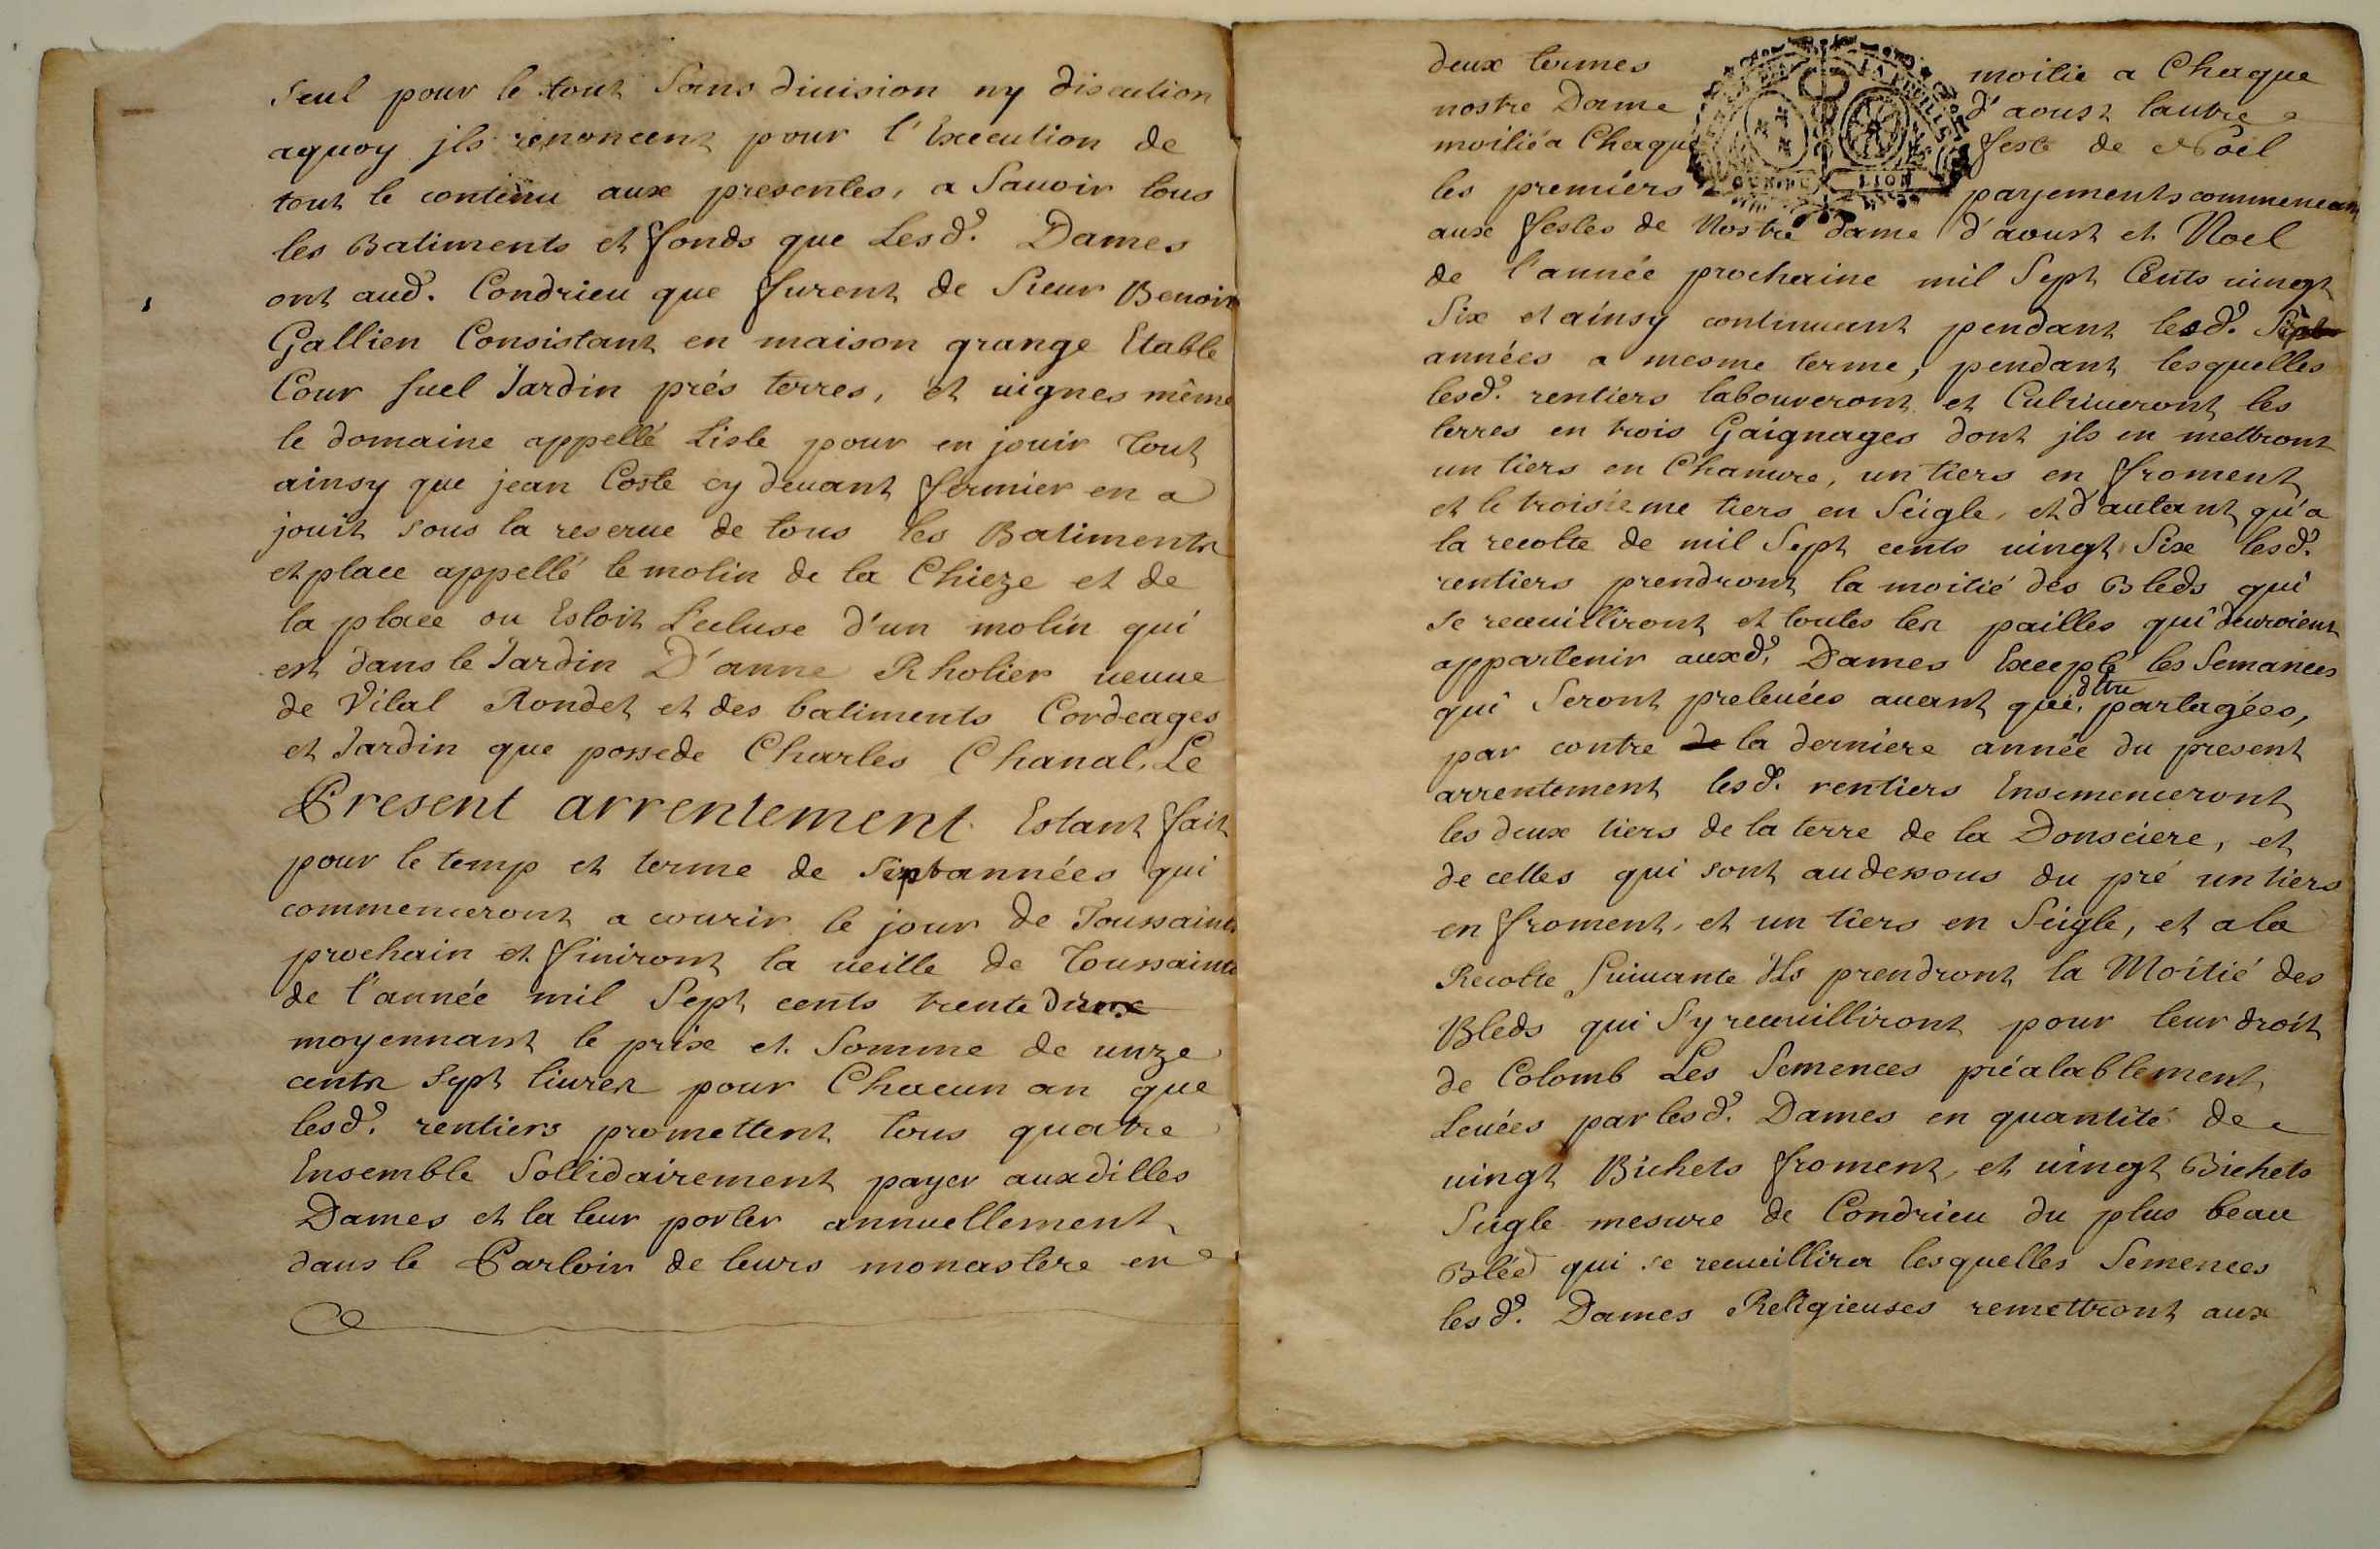 Seul pour le tout Sans diuision ny discution
aquoy jls renoncent pour l'Execution de
tout le contenu aux presentes, a Sauoir tous
les Batiments et ffonds que Lesd. Dames
ont aud. Condrieu que ffurent de Sieur Benoit
Gallien Consistant en maison grange Etable
Cour suel Jardin prés terres, et uignes même
le domaine appellé Lisle pour en jouir tout
ainsy que jean Coste cy deuant ffermier en a
jouit sous la reserue de tous les Batiments
et place appellé le molin de la Chieze et de
la place ou Estoit Lecluse d'un molin qui
est dans le Jardin D'anne Rholier ueuue
de Vital Rondet et des batiments Cordeages
et Jardin que possede Charles Chanal, Le
Present arrentement Estant ffait
pour le temp et terme de Sept années qui
commenceront a courir le jour de Toussaints
prochain et ffiniront la ueille de Toussaints
de l'année mil Sept cents trente deux
moyennant le prix et Somme de unze
cents Sept liures pour Chacun an que
lesd. rentiers promettent tous quatre
Ensemble Sollidairement payer auxdittes
Dames et la leur porter annuellement
dans le Parloir de leurs monastere en
deux termes moitié a Chaque
nostre Dame d'aoust lautre
moitié a Chaque ffeste de Noël
les premiers payements commencant
aux ffestes de Nostre dame d'aoust et Noel
de l'année prochaine mil Sept Cents uingt
Six et ainsy continuant pendant lesd. Sept
années a mesme terme, pendant lesquelles
lesd. rentiers laboureront et Cultiueront les
terres en trois Gaignages dont jls en mettront
un tiers en Chanure, un tiers en ffroment
et le troisieme tiers en Seigle, et d'autant qu'a
la recolte de mil Sept cents uingt Six lesd.
rentiers prendront la moitié des Bleds qui
se recuilliront et toutes les pailles qui deuroient
appartenir auxd. Dames Excepté les Semances
qui Seront preleuées auant que d'être partagées,
par contre de la derniere année du present
arrentement lesd. rentiers Ensemenceront
les deux tiers de la terre de la Donsciere, et
de celles qui sont audessous du pré un tiers
en ffroment, et un tiers en Seigle, et a la
Recolte Suiuante Ils prendront la Moitié des
Bleds qui S'y recuilliront pour leur droit
de Colomb Les Semences préalablement
Leuées par lesd. Dames en quantité de
uingt Bichets ffroment, et uingt Bichets
Seigle mesure de Condrieu du plus beau
Bléd qui se recueillira lesquelles Semences
lesd. Dames Religieuses remettront aux